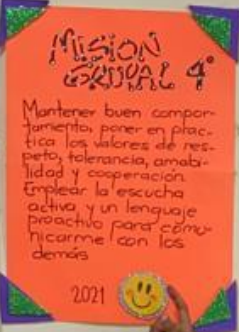 MISION
GRUPAL 4°
Mantener buen compor-
tamiento, poner en prác-
tica los valores de res-
peto, tolerancia, amabi-
lidad y cooperación.
Emplear la escucha
activa y un lenguaje
proactivo para comu-
nicarme con los
demás
2021